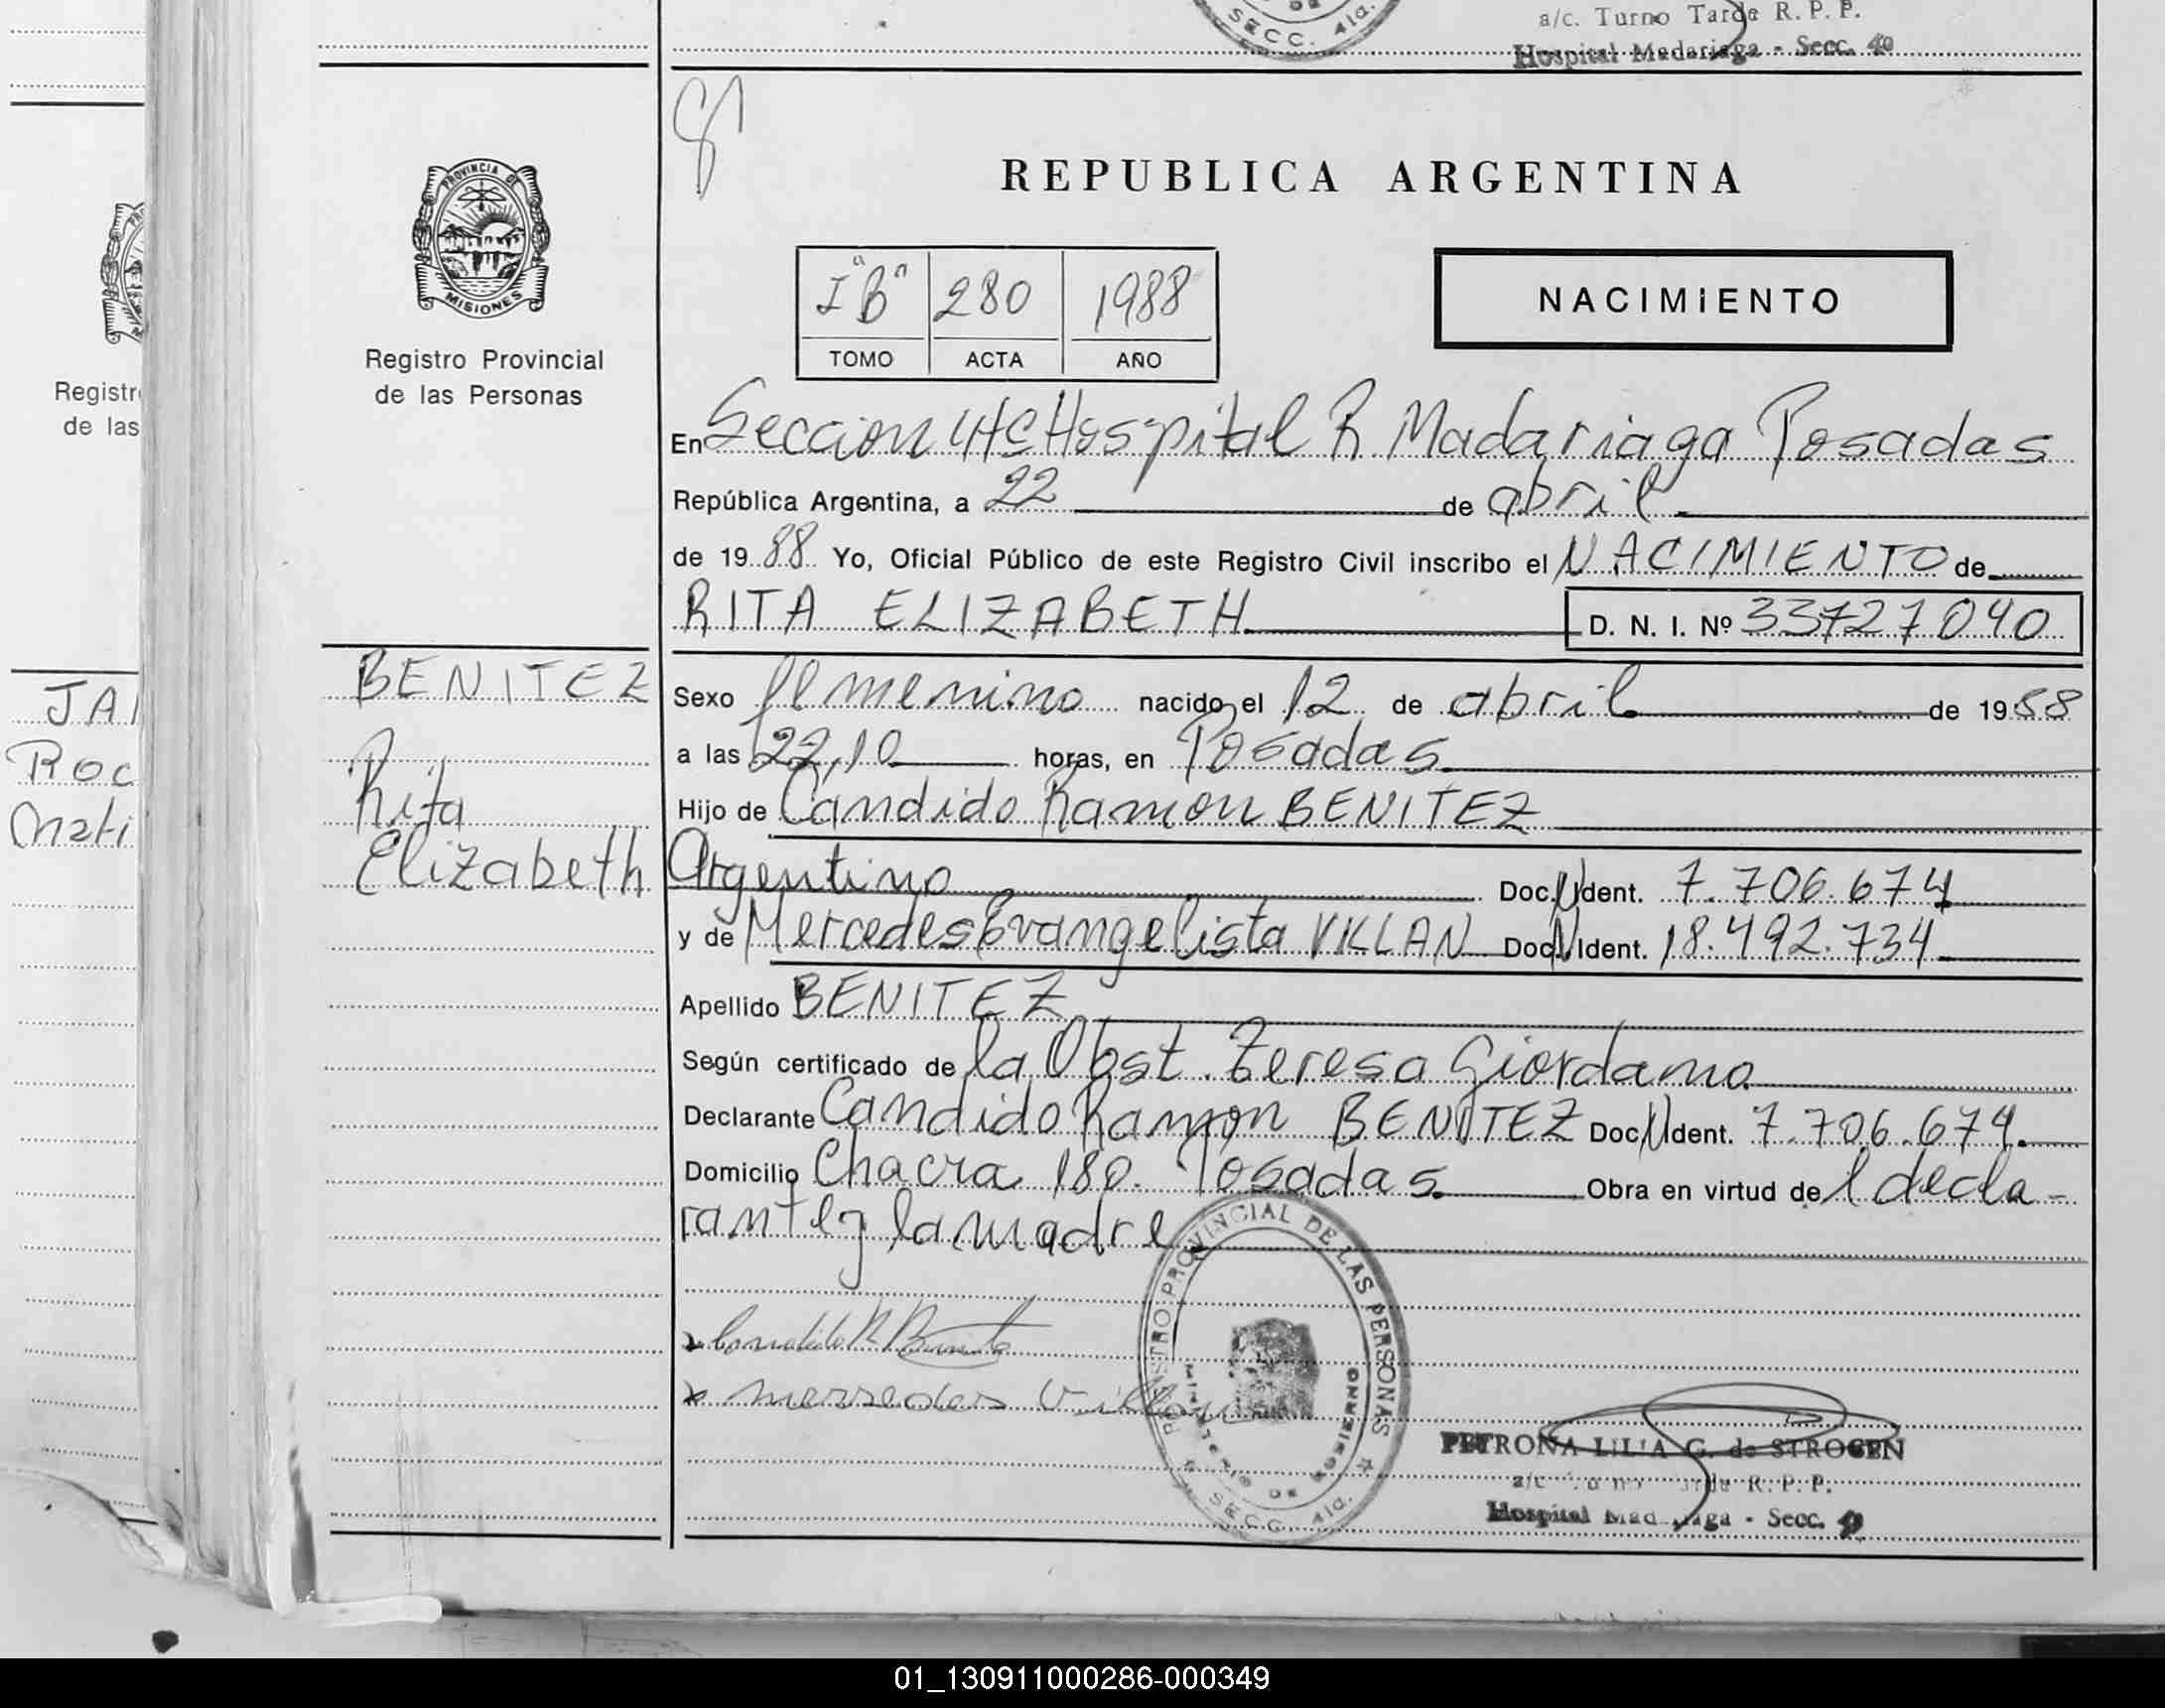 SECC. 4ta.
a/c. Turno Tarde R. P. P.
Hospital Madariaga - Secc. 4a
PROVINCIA DE
MISIONES
Registro Provincial
de las Personas
Registr
de las
REPUBLICA ARGENTINA
I "B" 280 1988
TOMO ACTA AÑO
NACIMIENTO
En Seccion 4ta Hospital R. Madariaga Posadas
República Argentina, a 22 de abril
de 1988 Yo, Oficial Público de este Registro Civil inscribo el NACIMIENTO de
RITA ELIZABETH D. N. I. Nº 33727040
JAI
Roc
Mati
BENITEZ
Rita
Elizabeth
Sexo femenino nacido el 12 de abril de 1988
a las 22,10 horas, en Posadas
Hijo de Candido Ramon BENITEZ
Argentino Doc. N Ident. 7.706.674
y de Mercedes Evangelista VILLAN Doc. N Ident. 18.492.734
Apellido BENITEZ
Según certificado de la Obst. Teresa Giordano
Declarante Candido Ramon BENITEZ Doc. N Ident. 7.706.674.
Domicilio Chacra 180. Posadas. Obra en virtud de l decla-
rante y la madre
x Candido R Benitez
x mersedes Villan
REGISTRO PROVINCIAL DE LAS PERSONAS
MINISTERIO DE GOBIERNO
SECC. 4ta.
PETRONA LILIA G. de STROGEN
a/c Turno Tarde R. P. P.
Hospital Madariaga - Secc. 4a
01_130911000286-000349